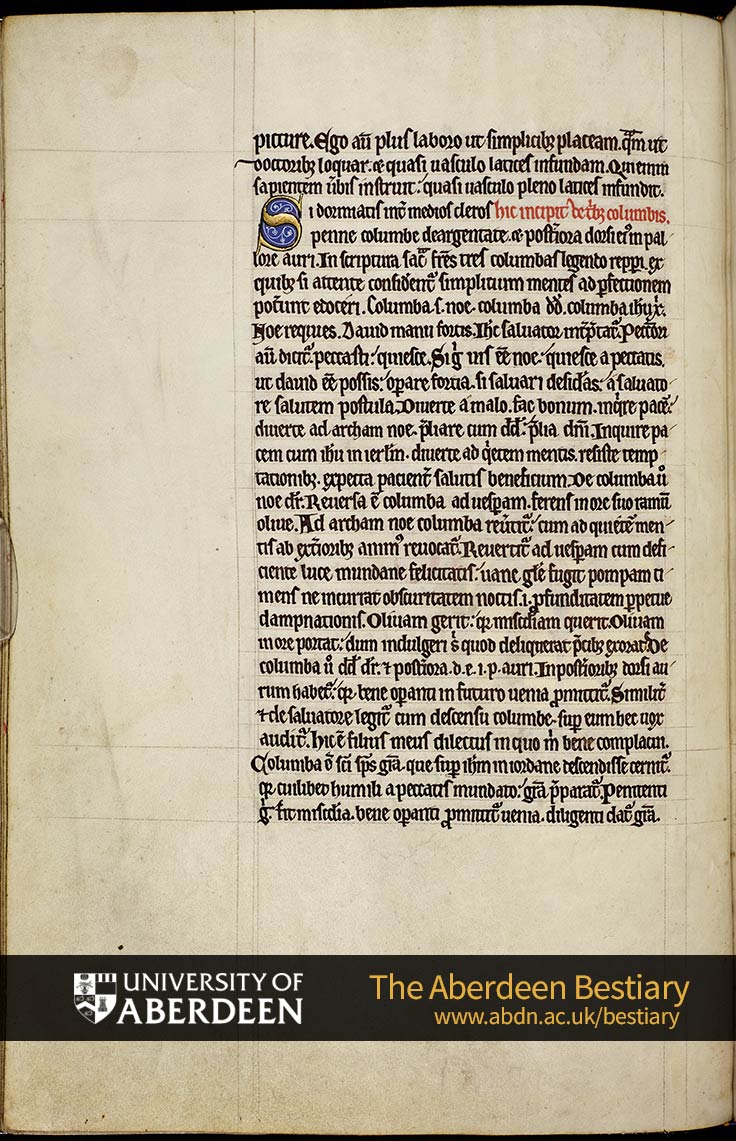 picture. Ego aū plus laboro ut simplicibꝫ placeam. q̄m ut
doctoribꝫ loquar. ⁊ quasi uasculo latices infundam. Qui enim
sapientem ūbis instruit: quasi uasculo pleno latices infundit.
Si dormiatis int̄ medios cleros hic incipit de trib; columbis.
penne columbe deargentate. ⁊ post̄iora dorsi ei᷒ in pal
lore auri. In scriptura sac̄ fr̄es tres columbas legendo repp̄i. ex
quibꝫ si attente considerent᷑ simplicium mentes ad ꝑfectionem
pot̄unt edoceri. Columba .s. noe. columba dd̄. columba ihu xp̄i.
Noe requies. Dauid manu fortis. Ihc saluator int̄p̄tat᷑. Peccatori
aū dicit᷑. peccasti: quiesce. Si g̊ uis ēē noe: quiesce a peccatis.
ut dauid ēē possis: oꝑare fortia. si saluari desid̄as: a saluato
re salutem postula. Diuerte a malo. fac bonum. inq̄re pacē:
diuerte ad archam noe. p̄liare cum dd̄. p̄lia dn̄i. Inquire pa
cem cum ihu in ierlm̄. diuerte ad q̇etem mentis. resiste temp
tationibꝫ. expecta pacient̄ salutis beneficium. De columba ů
noe dr̄. Reuersa ē columba ad uesꝑam. ferens in ore suo ramū
oliue. Ad archam noe columba reūtit᷑: cum ad quietē men
tis ab ext̄ioribꝫ anim᷒ reuocat᷑. Reuertit᷑ ad uesꝑam cum defi
ciente luce mundane felicitatis: uane gl̄e fugit pompam ti
mens ne incurrat obscuritatem noctis .i. ꝓfunditatem ꝑpetue
dampnationis. Oliuam gerit: q̄ misc̄diam querit. Oliuam
in ore portat: dum indulgeri s̄ quod deliquerat p̄cibꝫ exorat. De
columba ů dd̄ dr̄. ⁊ post̄iora .d. e. i. p. auri. In post̄ioribꝫ dorsi au
rum habet᷑: q̄ bene oꝑanti in futuro uenia ꝓmittit᷑. Similit̄
⁊ de saluatore legit᷑ cum descensu columbe. suꝑ eum hec uox
audit᷑. Hic ē filius meus dilectus in quo m̄ bene complacui.
Columba ē sc̄i sp̄s gr̄a. que suꝑ ihm in iordane descendisse cernit᷑.
q̄ cuilibet humili a peccatis mundato: gr̄a p̄parat᷑. Penitenti
g̊ fit misc̄dia. bene oꝑanti ꝓmittit᷑ uenia. diligenti dat᷑ gr̄a.
UNIVERSITY OF
ABERDEEN
The Aberdeen Bestiary
www.abdn.ac.uk/bestiary